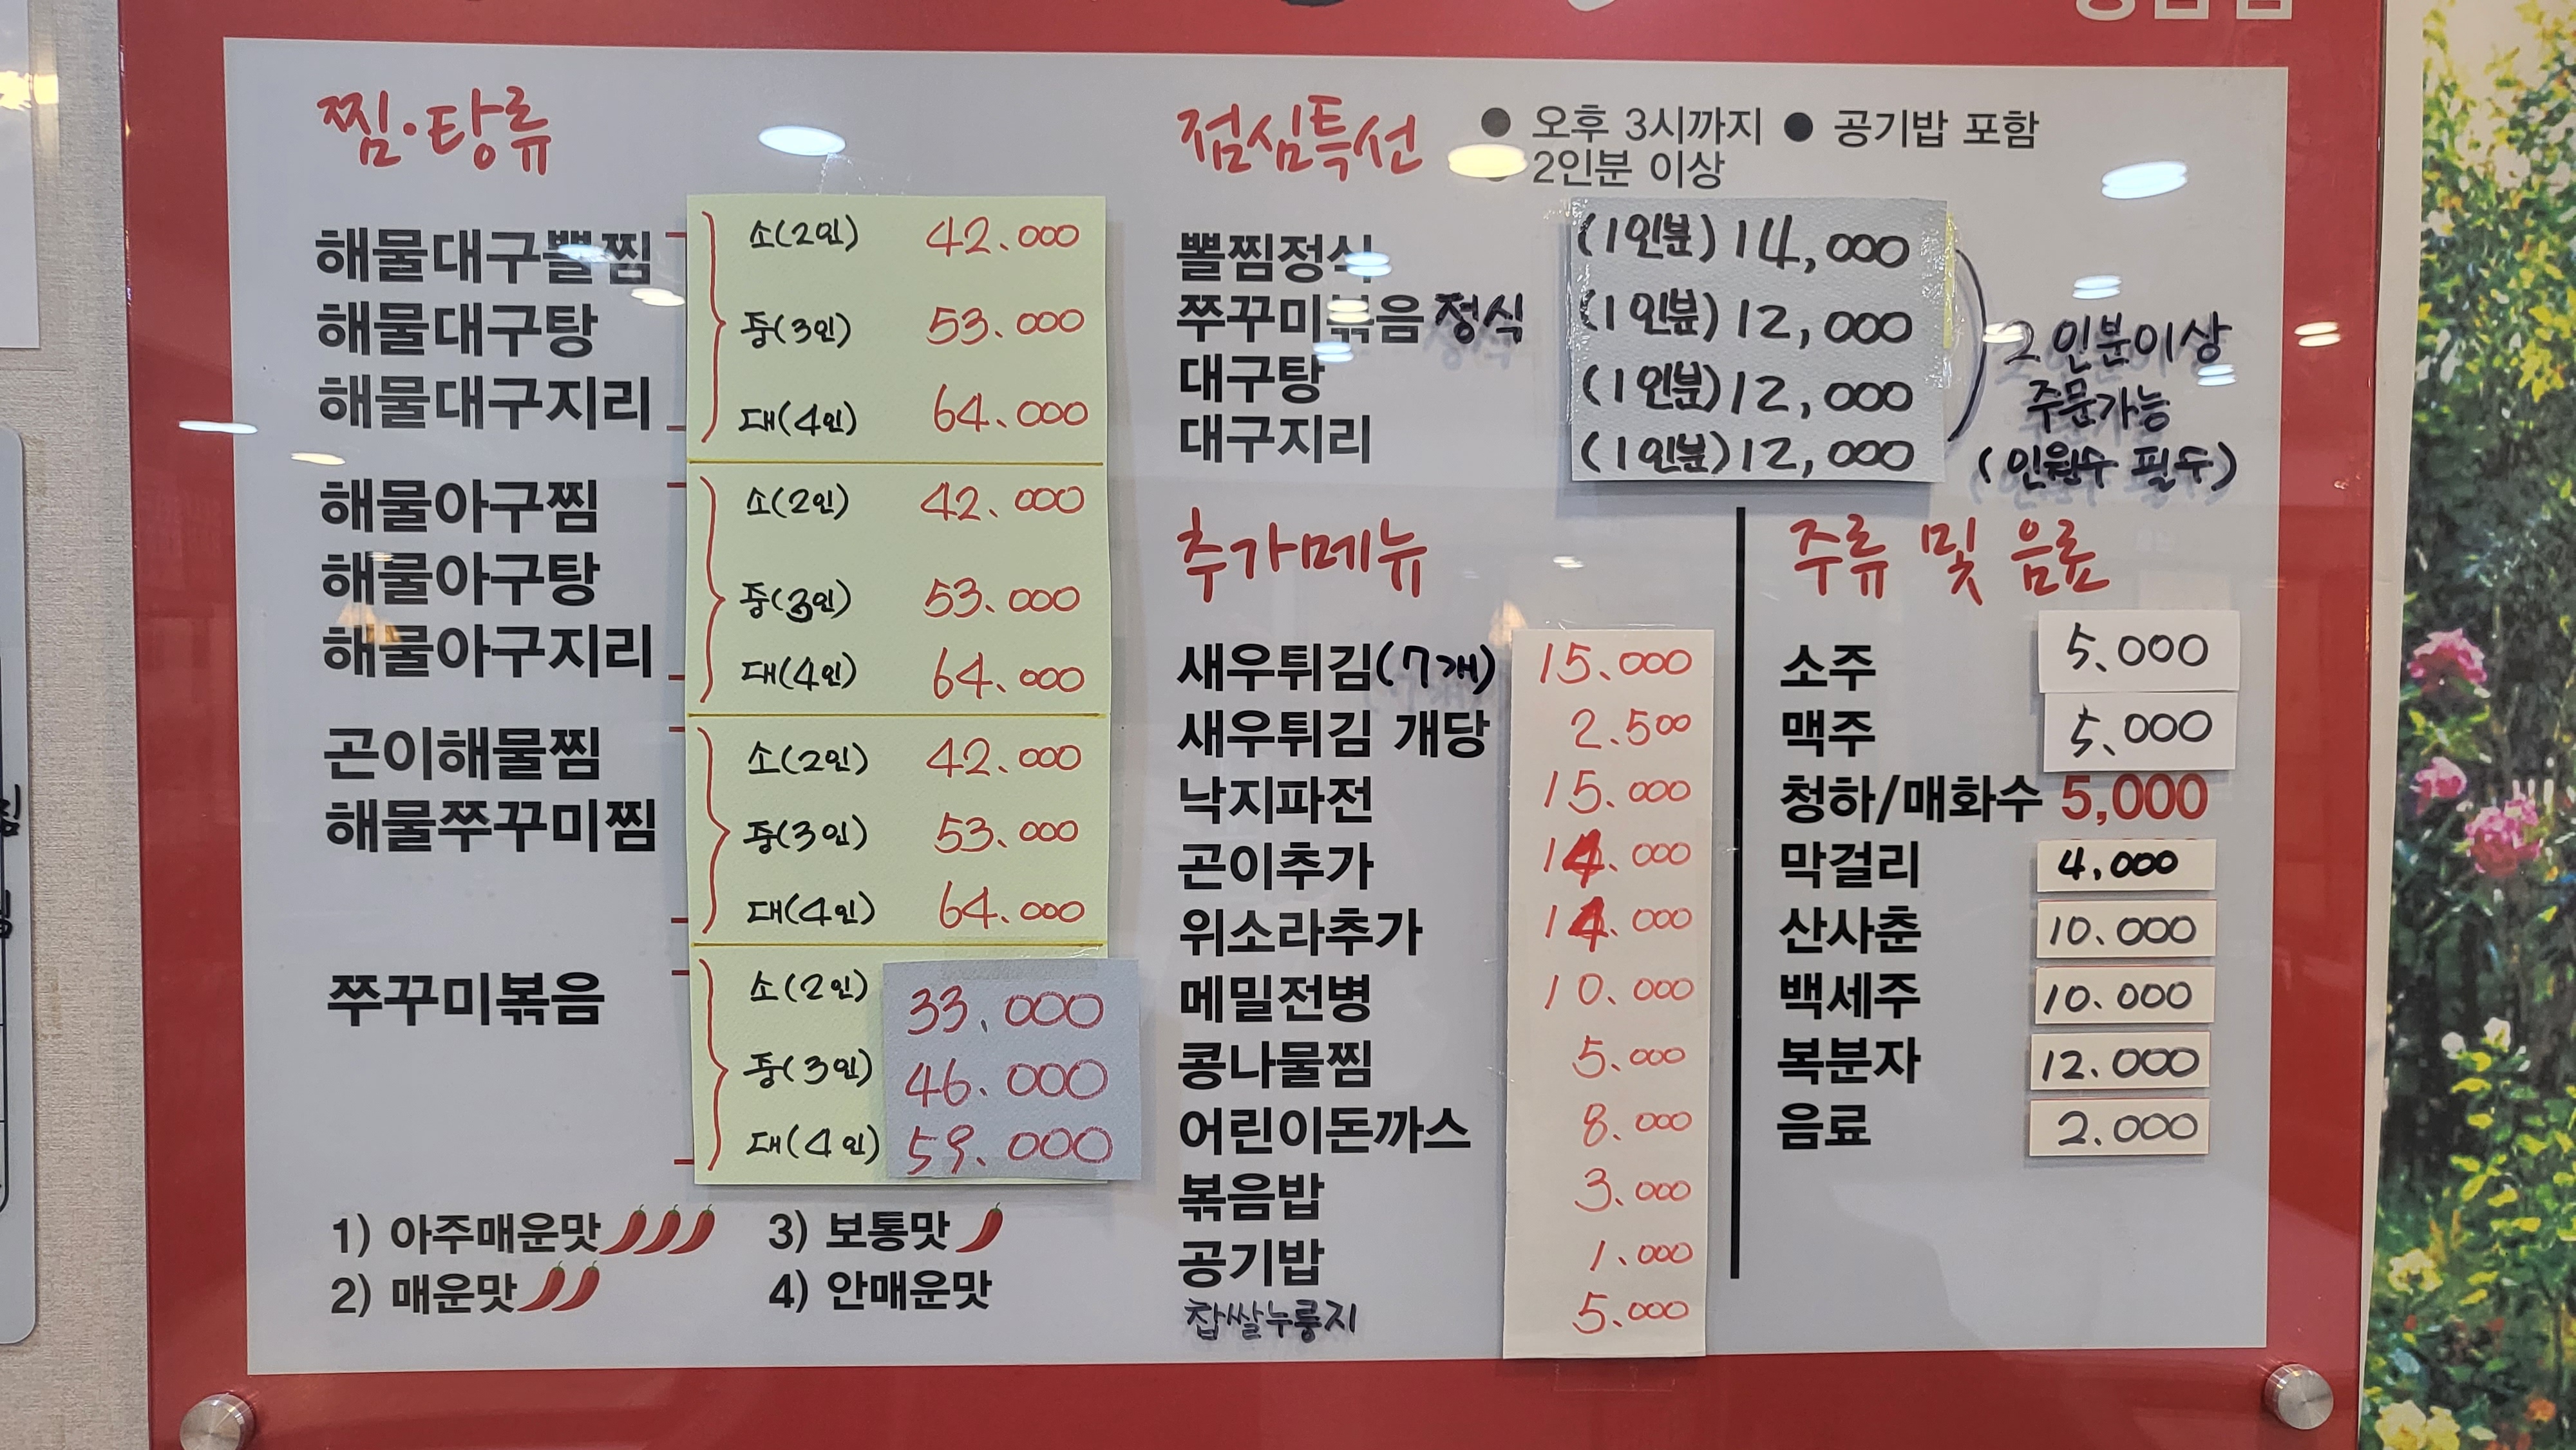 찜·탕류
해물대구뽈찜
해물대구탕
해물대구지리
소(2인) 42.000
중(3인) 53.000
대(4인) 64.000
해물아구찜
해물아구탕
해물아구지리
소(2인) 42.000
중(3인) 53.000
대(4인) 64.000
곤이해물찜
해물쭈꾸미찜
소(2인) 42.000
중(3인) 53.000
대(4인) 64.000
쭈꾸미볶음
소(2인) 33.000
중(3인) 46.000
대(4인) 59.000
1) 아주매운맛
2) 매운맛
3) 보통맛
4) 안매운맛
점심특선 ● 오후 3시까지 ● 공기밥 포함
● 2인분 이상
뽈찜정식 (1인분) 14,000
쭈꾸미볶음 정식 (1인분) 12,000
대구탕 (1인분) 12,000
대구지리 (1인분) 12,000
2인분이상
주문가능
(인원수 필수)
추가메뉴
새우튀김(7개) 15.000
새우튀김 개당 2.500
낙지파전 15.000
곤이추가 14.000
위소라추가 14.000
메밀전병 10.000
콩나물찜 5.000
어린이돈까스 8.000
볶음밥 3.000
공기밥 1.000
찹쌀누룽지 5.000
주류 및 음료
소주 5.000
맥주 5.000
청하/매화수 5,000
막걸리 4,000
산사춘 10.000
백세주 10.000
복분자 12.000
음료 2.000